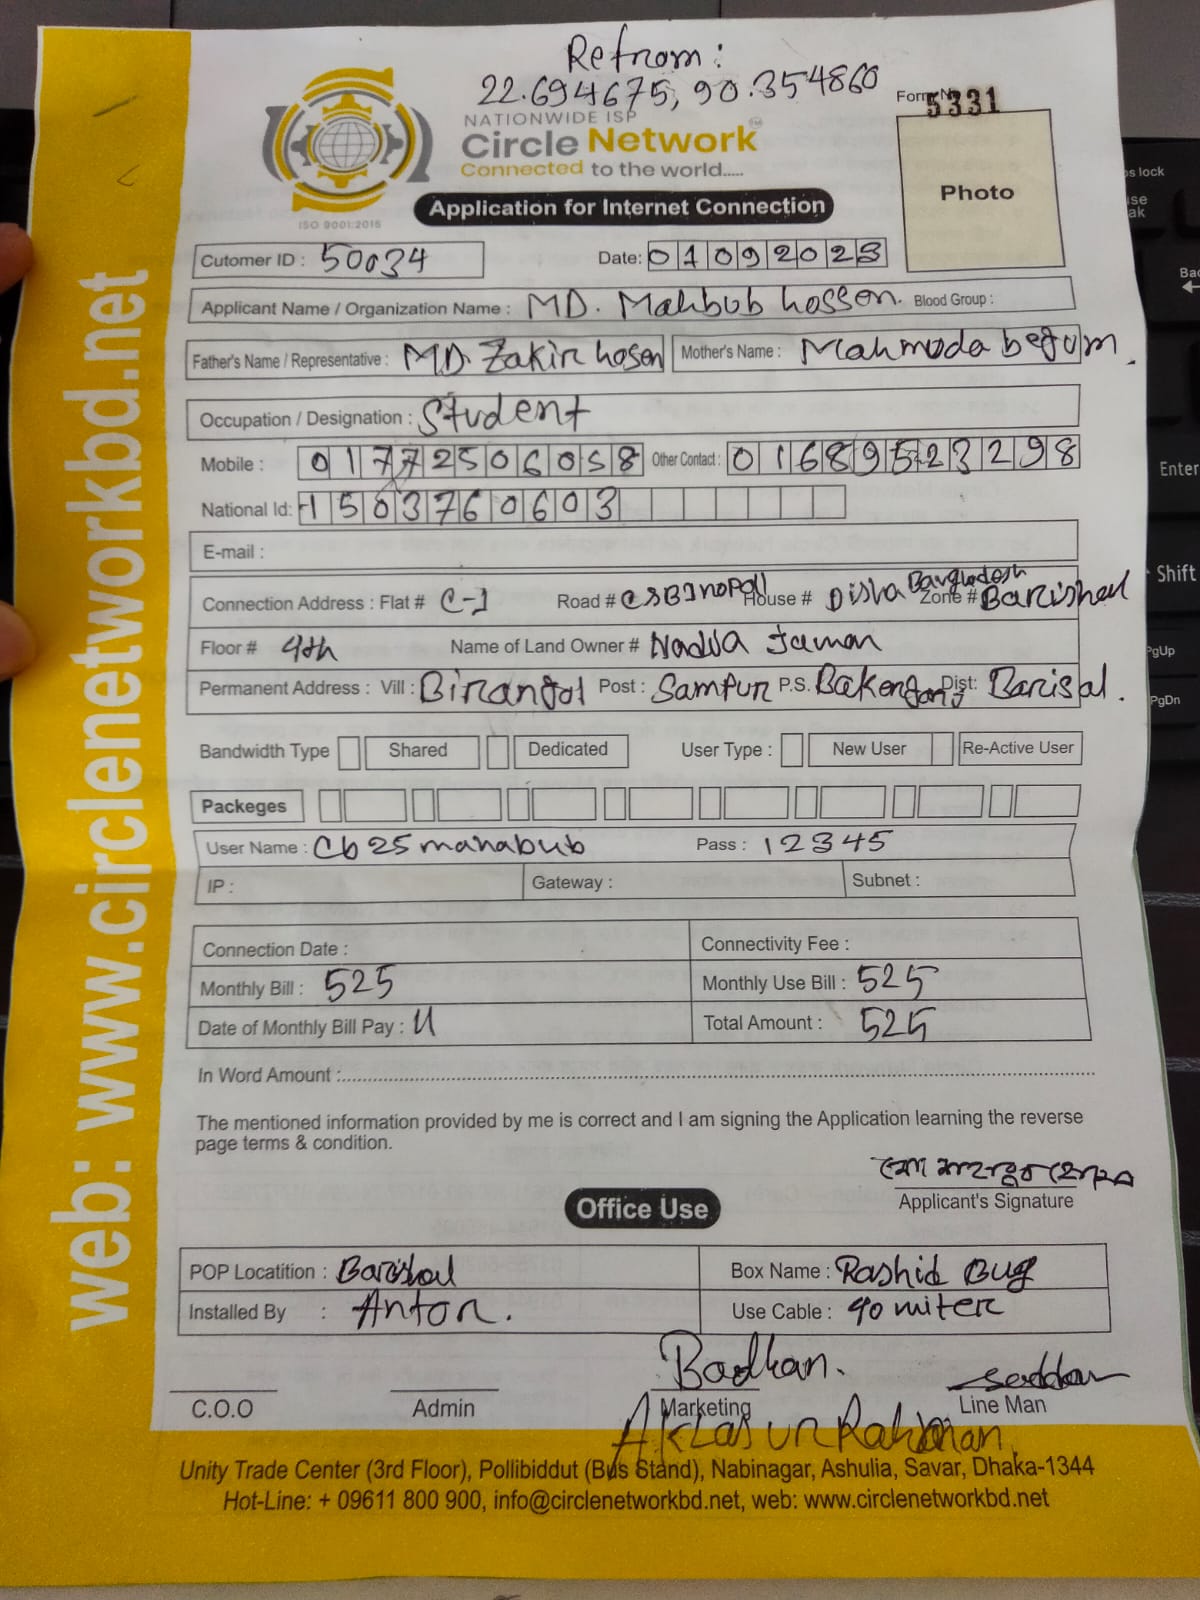 Refrom:
22.694675, 90.354860
Form No 5331
NATIONWIDE ISP
Circle Network
Connected to the world.....
ISO 9001:2015
Photo
Application for Internet Connection
Cutomer ID : 50034 Date: 01092023
Applicant Name / Organization Name : MD. Mahbub hossen. Blood Group :
Father's Name / Representative : MD. Zakir hosen Mother's Name : Mahmoda begum.
Occupation / Designation : Student
Mobile : 01772506058 Other Contact : 01689523298
National Id: 1503760603
E-mail :
Connection Address : Flat # C-1 Road # House # Disha Bangladesh Zone # Barishal
Floor # 4th Name of Land Owner # Nadia Jaman
Permanent Address : Vill : Birangol Post : Sampur P.S. Bakergonj Dist: Barisal.
Bandwidth Type Shared Dedicated User Type : New User Re-Active User
Packeges
User Name : Cb25mahabub Pass : 12345
IP : Gateway : Subnet :
Connection Date : Connectivity Fee :
Monthly Bill : 525 Monthly Use Bill : 525
Date of Monthly Bill Pay : Total Amount : 525
In Word Amount :
The mentioned information provided by me is correct and I am signing the Application learning the reverse
page terms & condition.
Applicant's Signature
Office Use
POP Locatition : Barishal Box Name : Rashid
Installed By : Anton. Use Cable : 90 miter
Badhan. saddam
C.O.O Admin Marketing Line Man
Aklasur Rahman
Unity Trade Center (3rd Floor), Pollibiddut (Bus Stand), Nabinagar, Ashulia, Savar, Dhaka-1344
Hot-Line: + 09611 800 900, info@circlenetworkbd.net, web: www.circlenetworkbd.net
web: www.circlenetworkbd.net
ps lock
Enter
Shift
PgUp
PgDn